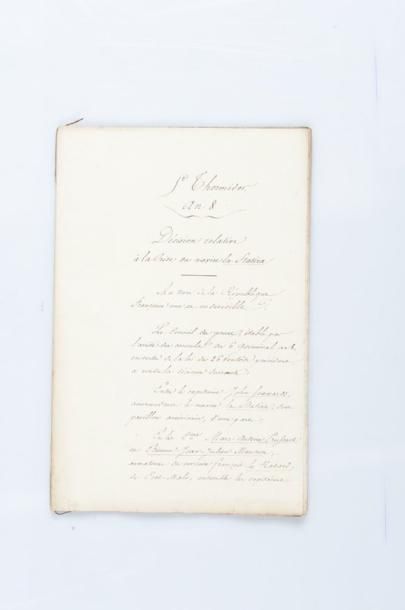 5e Thermidor
An 8
Décision relative
à la Prise du navire la Statira
Au nom de la République
française une et indivisible
Le Conseil des prises, établi par
l'arrêté des consuls, du 6 Germinal an 8,
en vertu de la loi du 26 Ventôse précédent
a rendu la décision suivante
Entre le capitaine John
commandant le navire la Statira, sous
pavillon américain, d'une part
Et les Cens Marc Antoine
et Etienne Jean Julien
armateurs du corsaire français le Hasard,
de Port-Malo, ensemble les capitaine